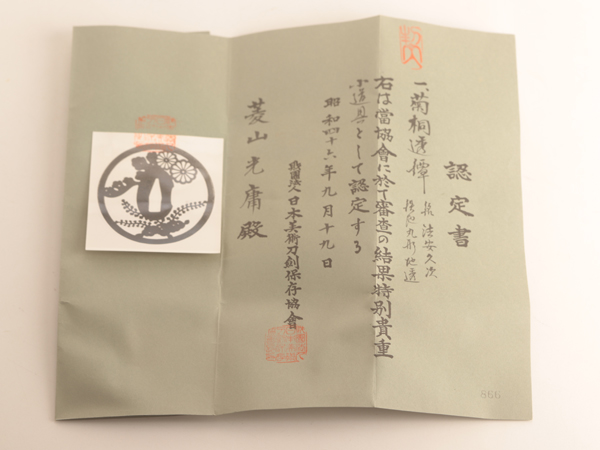 認定書
一、菊桐透鐔
銘 法安久次
鉄地丸形地透
右は當協會に於て審査の結果特別貴重
小道具として認定する
昭和四十六年九月十九日
財團法人日本美術刀劍保存協會
菱山光庸殿
866